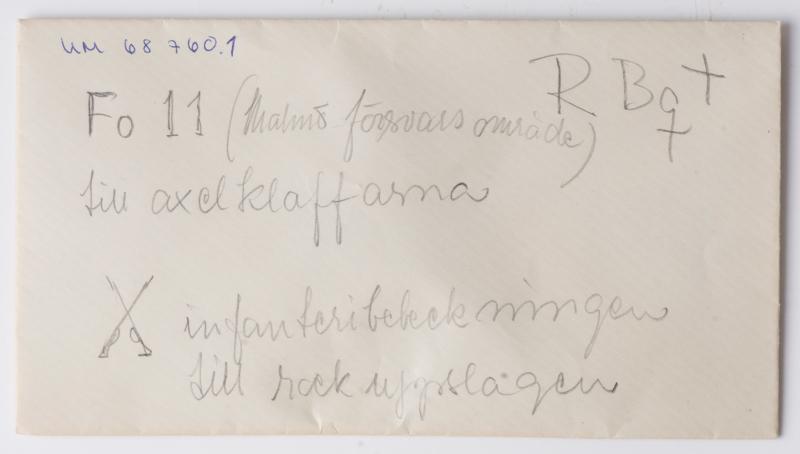 UM 68 760.1
R B
Fo 11 (Malmö försvarsområde)
till axelklaffarna
infanteribebeckningen
till rockuppslagen